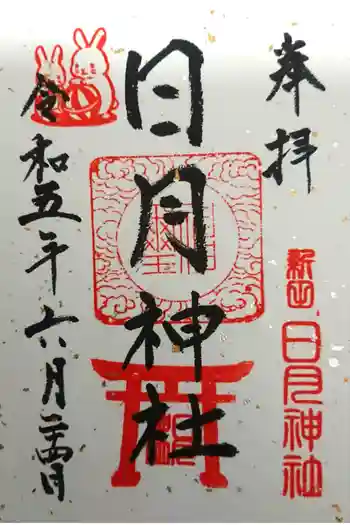 奉拝
日月神社
日月神社
令和五年六月二十四日